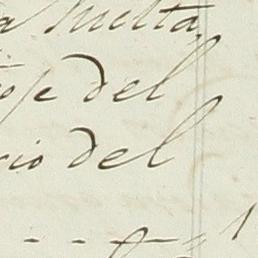 a Multa,
ose del
rio del